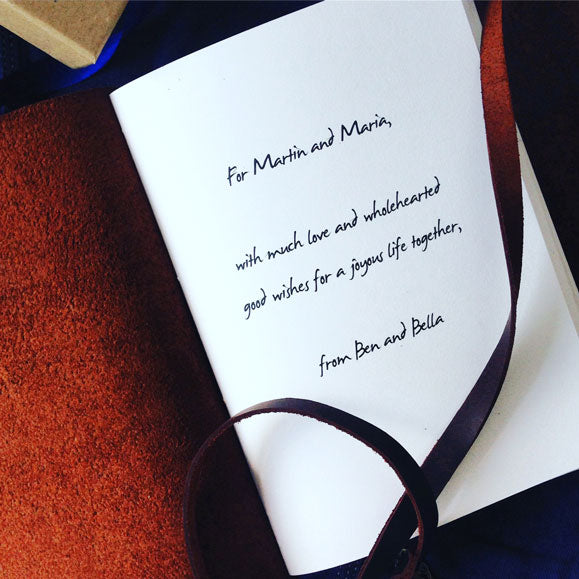 For Martin and Maria,
with much love and wholehearted
good wishes for a joyous life together,
from Ben and Bella